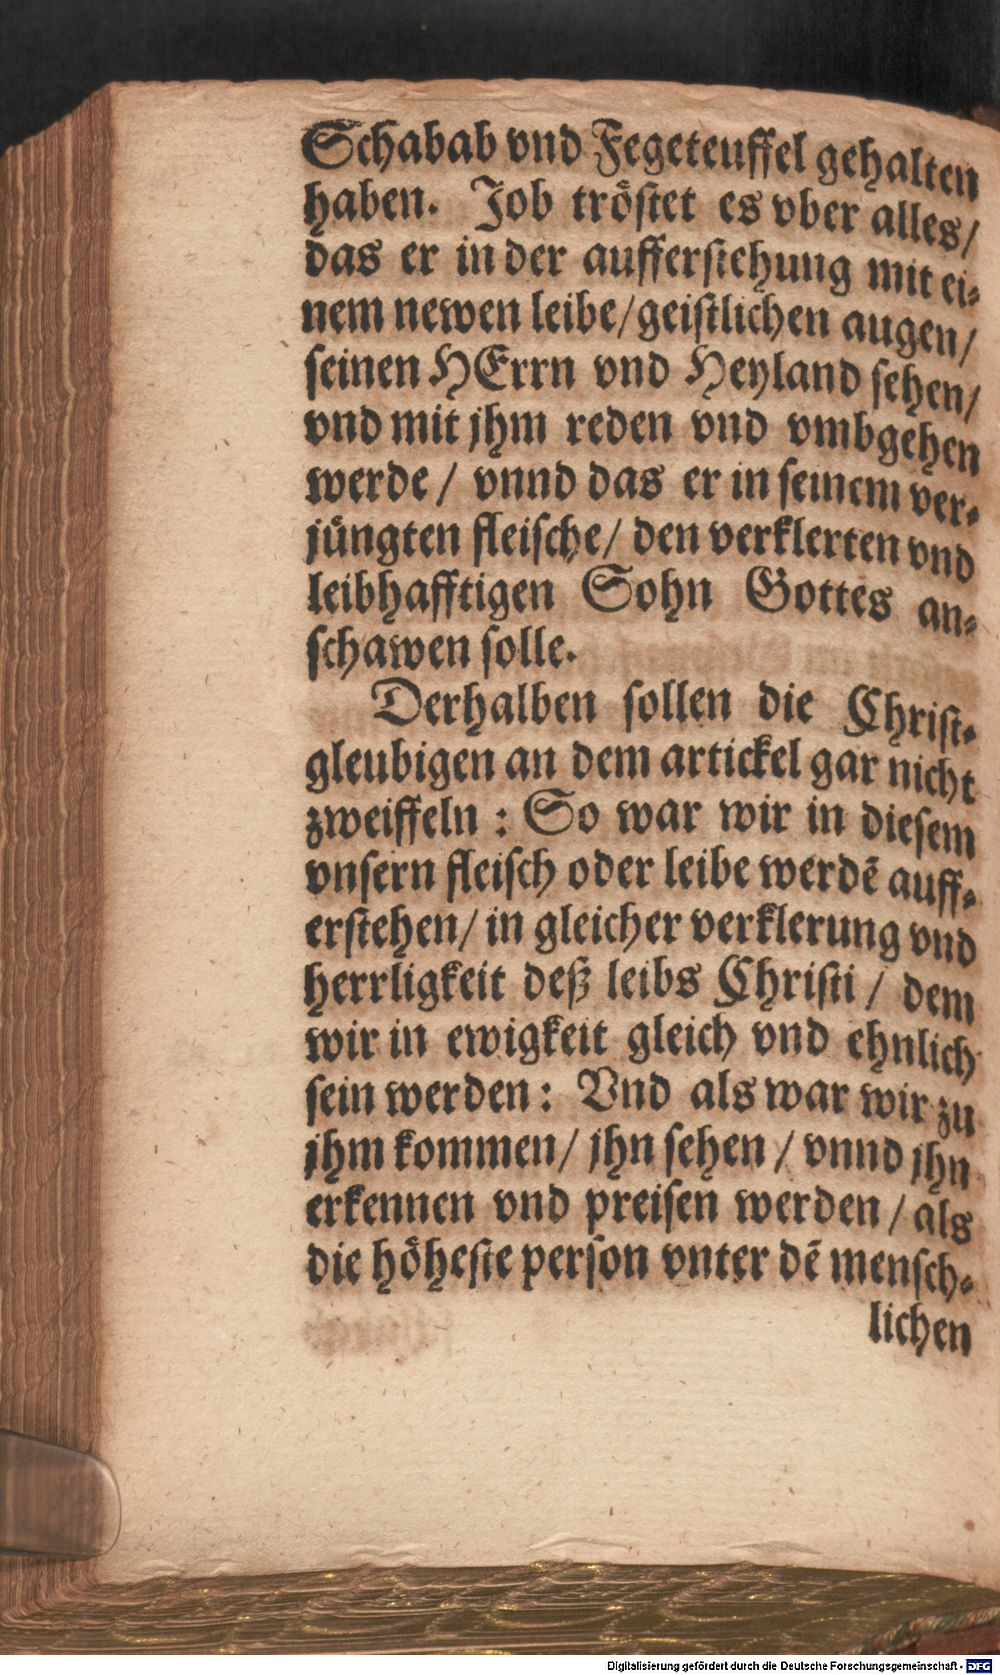 Schabab vnd Fegeteuffel gehalten
haben. Job tröstet es vber alles/
das er in der aufferstehung mit ei-
nem newen leibe/geistlichen augen/
seinen HErrn vnd Heyland sehen/
vnd mit jhm reden vnd vmbgehen
werde/ vnnd das er in seinem ver-
jüngten fleische/ den verklerten vnd
leibhafftigen Sohn Gottes an-
schawen solle.
Derhalben sollen die Christ-
gleubigen an dem artickel gar nicht
zweiffeln: So war wir in diesem
vnsern fleisch oder leibe werdẽ auff-
erstehen/ in gleicher verklerung vnd
herrligkeit deß leibs Christi/ dem
wir in ewigkeit gleich vnd ehnlich
sein werden: Vnd als war wir zu
jhm kommen/ jhn sehen/ vnnd jhn
erkennen vnd preisen werden/ als
die höheste person vnter dẽ mensch-
lichen
Digitalisierung gefördert durch die Deutsche Forschungsgemeinschaft - DFG